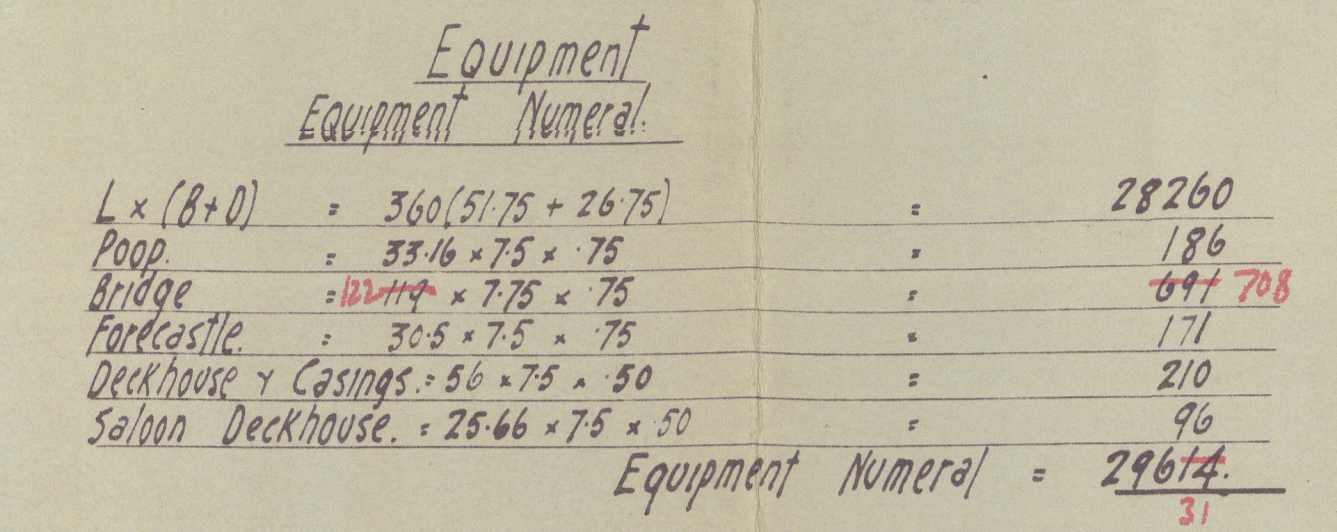 Equipment
Equipment Numeral.
L × (B+D) = 360(51.75 + 26.75) = 28260
Poop. = 33.16 × 7.5 × .75 = 186
Bridge = 122 119 × 7.75 × .75 = 691 708
Forecastle. = 30.5 × 7.5 × .75 = 171
Deckhouse & Casings. = 56 × 7.5 × .50 = 210
Saloon Deckhouse. = 25.66 × 7.5 × .50 = 96
Equipment Numeral = 29614.
31